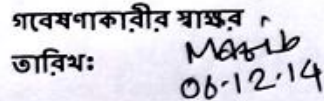 গবেষণাকারীর স্বাক্ষর
তারিখঃ
06.12.14